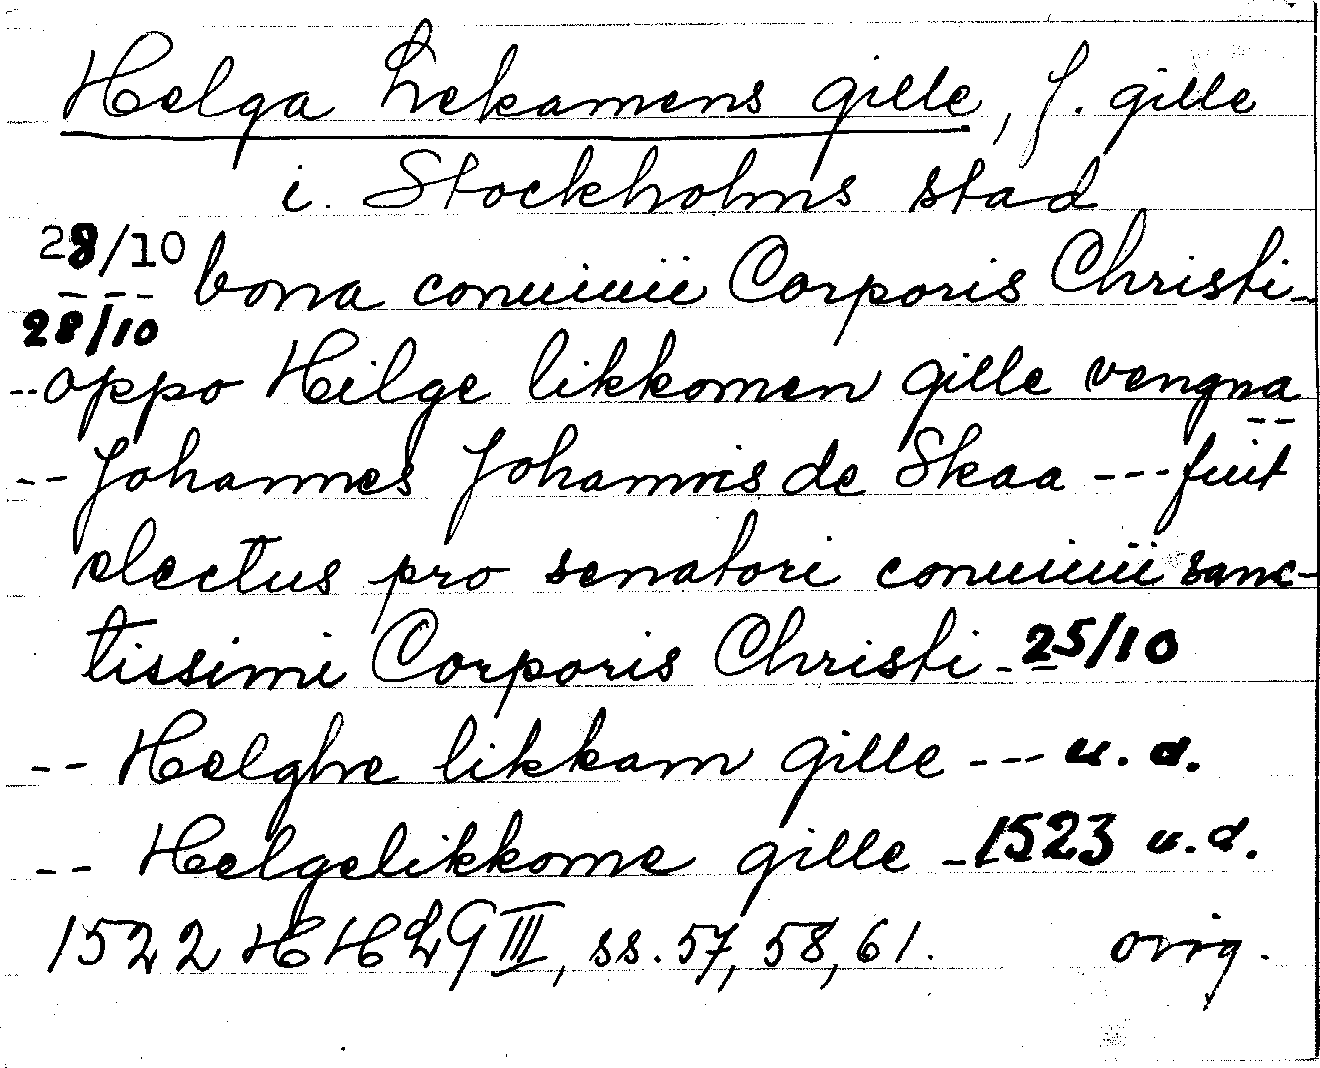 Helga Lekamens gille, f. gille
i. Stockholms stad
28/10 bona conuiuii Corporis Christi-
28/10
-- oppo Hilge likkomen gille vengna
-- Johannes Johannis de Skaa --- fuit
electus pro senatori conuiuii sanc-
tissimi Corporis Christi - 25/10
-- Helghe likkam gille --- u. d.
-- Helgelikkome gille - 1523 u.d.
1522 HHLG III, ss. 57, 58, 61. orig.